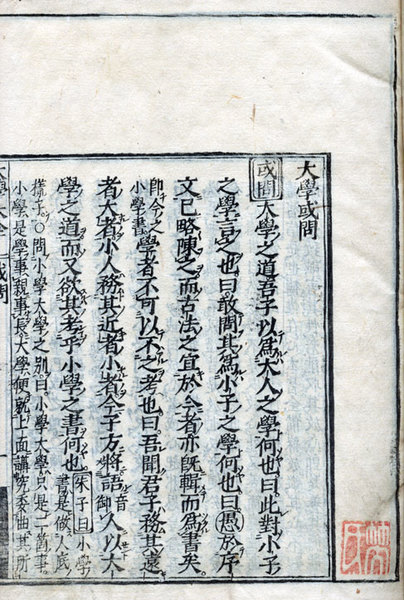 大學或問
或問大學之道吾子以爲大人之學何也曰此對小子
之學言之也曰敢問其爲小子之學何也曰愚於序
文已略陳之而古法之宜於今者亦既輯而爲書矣
即今之
小學書
學者不可以不之考也曰吾聞君子務其遠
者大者小人務其近者小者今子方將語音御人以大
學之道而又欲其考乎小學之書何也
朱子曰小學
書是做人底
樣子○問小學大學之別曰小學大學只是一箇事
小學是學事親事長大學便就上面講究委曲其所